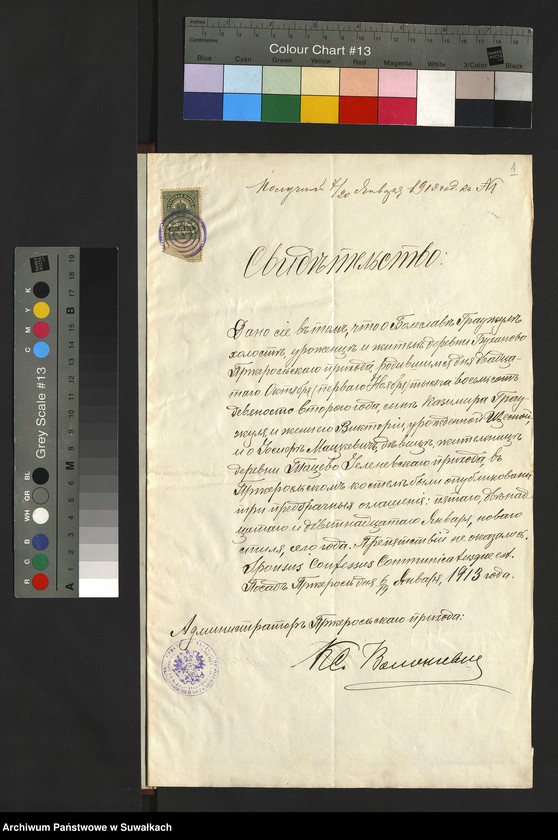 Inches
Centimetres
Colour Chart #13
Blue Cyan Green Yellow Red Magenta White 3/Color Black
Grey Scale #13
C M Y K
R G B WH GR BL
A M B
1
Получилъ 7/20 Января 1913 года №1
Свидѣтельство:
Дано сіе въ томъ, что о Болеславѣ
холостъ, уроженцъ и житель деревни
прихода, родившимся дня двадца-
таго Октября (перваго Ноября) тысяча восемьсотъ
девяносто втораго года, сынѣ Казимира
и жены его Викторіи, урожденной
и о Іосифѣ Мацкевичъ, дѣвицѣ, жительницѣ
деревни прихода, въ
костелѣ были опубликованы
три предбрачныя оглашенія: пятаго, двѣнад-
цатаго и девятнадцатаго Января, новаго
стиля, сего года. Препятствій не оказалось.
Sponsus Confessus Communicatusque est.
Посадъ дня 6/19 Января, 1913 года.
Администраторъ прихода:
Кс.
Archiwum Państwowe w Suwałkach